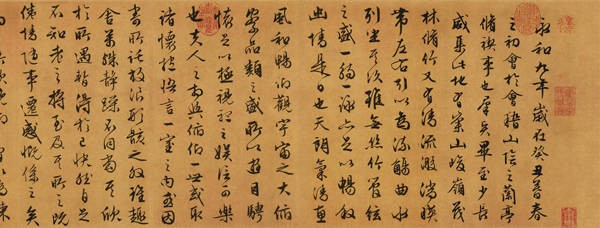 永和九年歲在癸丑暮春
之初會於會稽山陰之蘭亭
脩禊事也群賢畢至少長
咸集此地有崇山峻嶺茂
林脩竹又有清流激湍暎
帶左右引以為流觴曲水
列坐其次雖無絲竹管絃
之盛一觴一詠亦足以暢敘
幽情是日也天朗氣清惠
風和暢仰觀宇宙之大俯
察品類之盛所以遊目騁
懷足以極視聽之娛信可樂
也夫人之相與俯仰一世或取
諸懷抱悟言一室之內或因
寄所託放浪形骸之外雖趣
舍萬殊靜躁不同當其欣
於所遇暫得於己快然自足
不知老之將至及其所之既
惓情隨事遷感慨係之矣